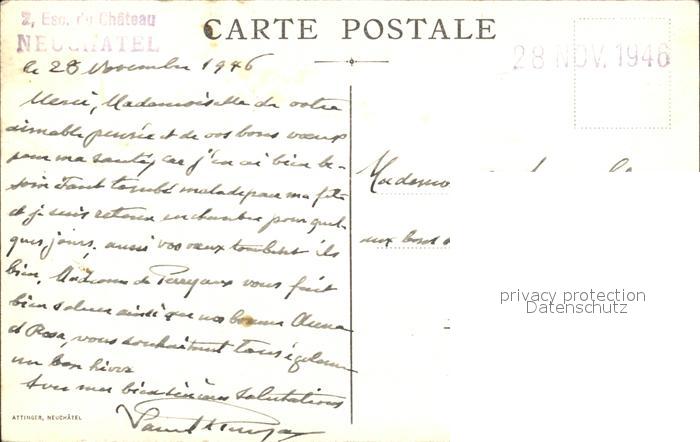 2, Esc. du Château
NEUCHATEL
CARTE POSTALE
28 NOV. 1946
le 28 Novembre 1946
Merci, Mademoiselle de votre
aimable pensée et de vos bons vœux
pour ma santé, car j'en ai bien be-
soin étant tombé malade pour ma fête
et je suis retenu en chambre pour quel-
ques jours, aussi vos vœux tombent ils
bien. Madame de Perregaux vous fait
bien saluer ainsi que nos bonnes Anna
et Rosa, vous souhaitant tous également
un bon hiver
Avec mes bien sincères salutations
Mademo
aux bons s
privacy protection
Datenschutz
ATTINGER, NEUCHÂTEL